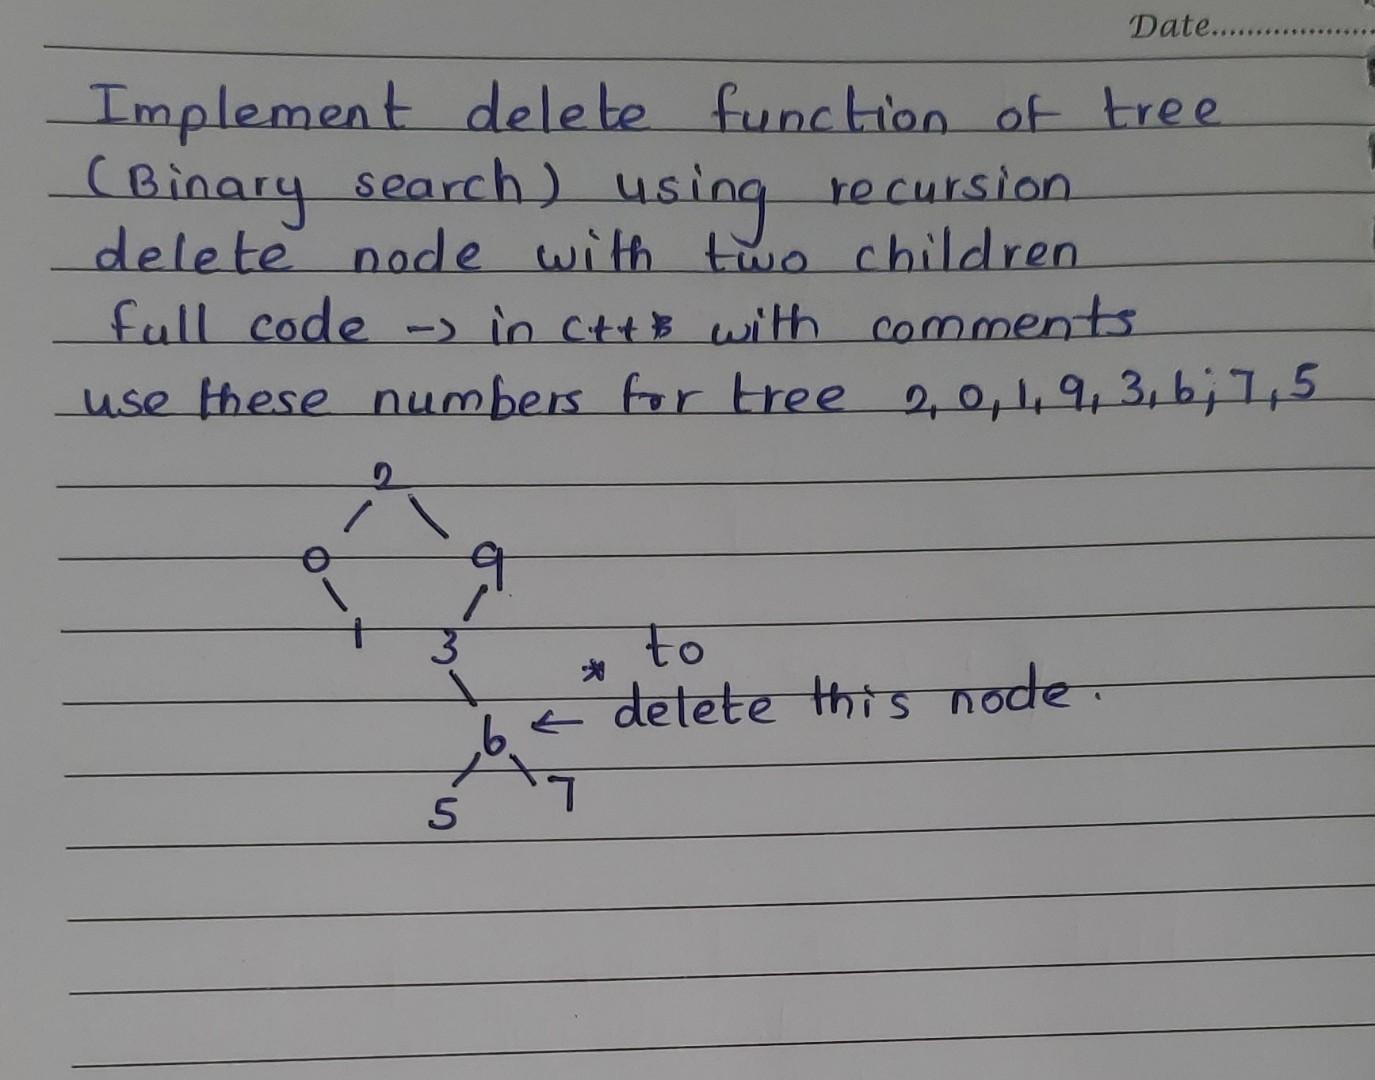 Date....................
Implement delete function of tree
(Binary search) using recursion
delete node with two children
full code -> in c++ with comments
use these numbers for tree 2, 0, 1, 9, 3, 6; 7, 5
2
0 9
1 3
* to
6 ← delete this node.
5 7